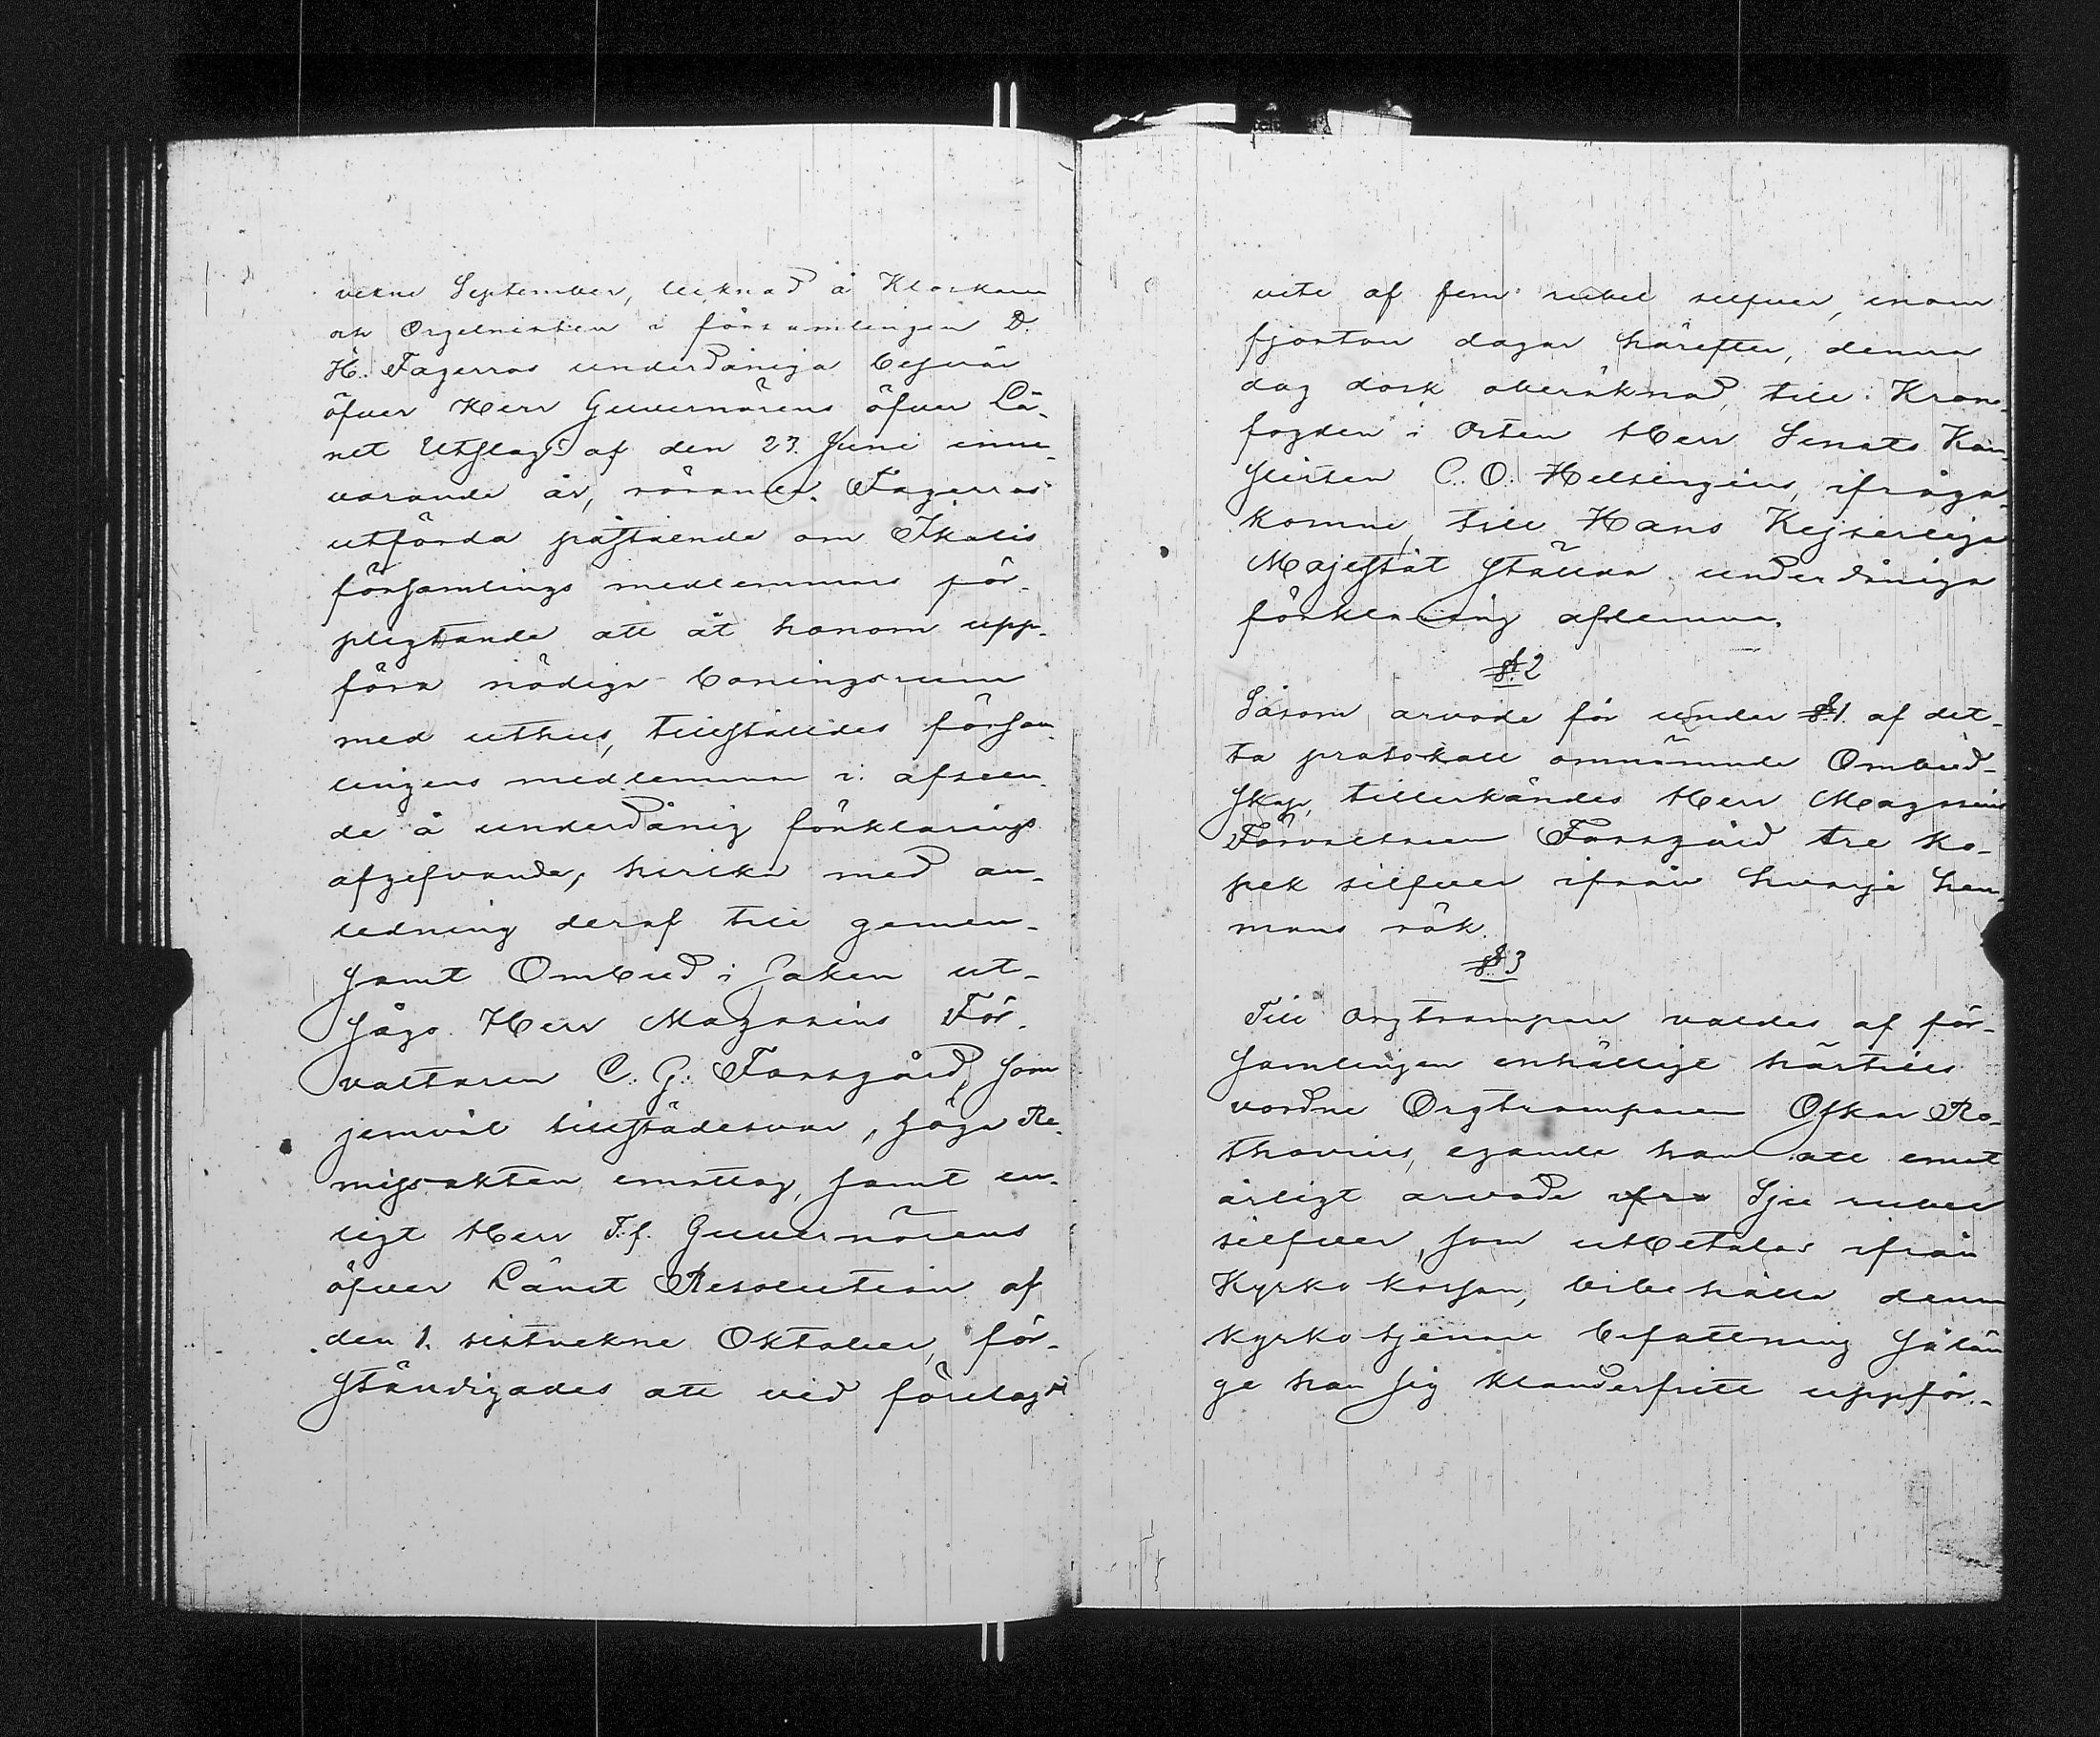 vekne September, tecknad å Klockaren
och Orgelnisten i församlingen D.
H. Fagerroos underdåniga besvär
öfver Herr Guvernörens öfver Lä-
net Utslag af den 27. Juni inne-
varande år, rörande Fagerroos
utförda påstående om Ikalis
församlings medlemmars för-
pligtande att åt honom upp-
föra nödiga boningsrum
med uthus, tillställdes försam-
lingens medlemmar i afseen-
de å underdånig förklarings
afgifvande, hvilka med an-
ledning deraf till gemen-
samt Ombud i saken ut-
sågo Herr Magasins För-
valtaren C. G. Forsgård, som
jemväl tillstädesvar, sågo Re-
missakten emottog, samt en-
ligt Herr T.f. Guvernörens
öfver Länet Resolution af
den 1. sistvekne Oktober, för-
ständigades att vid förelagdt
vite af fem rubel silfver, inom
fjorton dagar härefter, denna
dag dock oberäknad, till Krono-
fogden i Orten Herr Senats Kan-
slisten C. O. Helsingius, ifråga-
komne, till Hans Kejserliga
Majestät ställda underdåniga
förklaring aflemna.
§ 2
Såsom arvode för under § 1. af det-
ta protokoll omnämnde Ombud-
skap, tillerkändes Herr Magasins
Förvaltaren Forsgård tre ko-
pek silfver ifrån hvarje hem-
mans rök.
§ 3
Till Orgtrampare valdes af för-
samlingen enhälligt härtills
vordne Orgtramparen Oskar Ro-
thovius, egande han att emot
årligt arvode af Sju rubel
silfver, som utbetalas ifrån
Kyrko kassan, bibehålla denna
kyrkotjenare befattning sålän-
ge han sig klanderfritt uppför.-